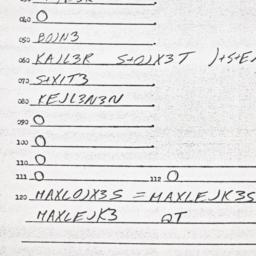 060 O
050 BOJN3
060 KAJL3R S+OJX3T
075 S+XIT3
080 KEJL3N3N
090 O
100 O
110 O
111 O 112 O
120 MAXLOJX3S = MAXLEJK3S
MAXLEJK3 QT